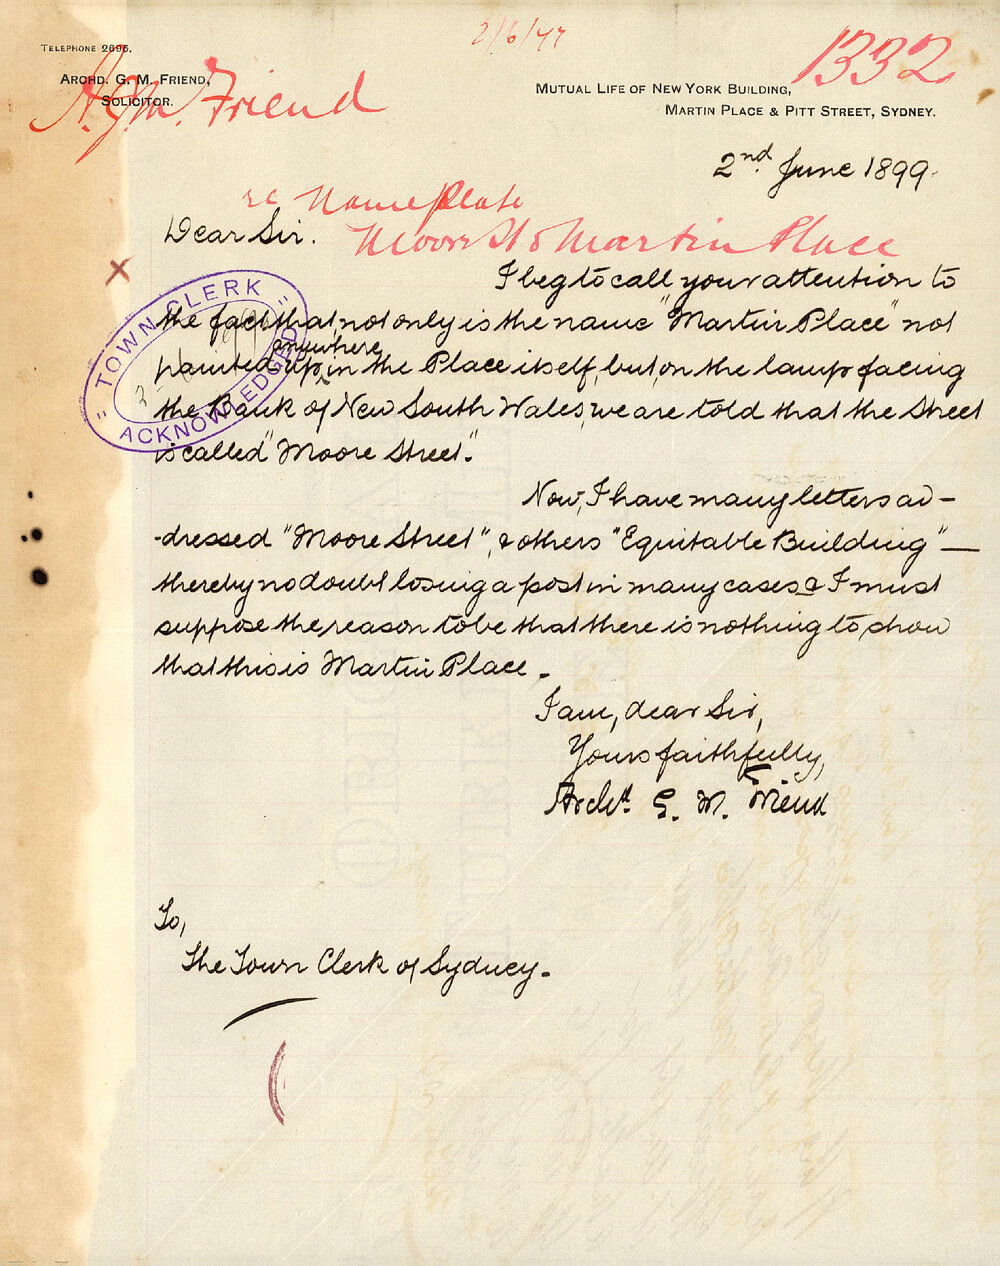 2/6/99
1332
TELEPHONE 2695.
ARCHD. G. M. FRIEND,
SOLICITOR.
A.G.M. Friend
MUTUAL LIFE OF NEW YORK BUILDING,
MARTIN PLACE & PITT STREET, SYDNEY.
2nd. June 1899.
re Name Plate
Moore St & Martin Place
Dear Sir.
I beg to call your attention to
the fact that, not only is the name "Martin Place" not
painted up anywhere in the Place itself, but, on the lamp facing
the Bank of New South Wales, we are told that the Street
is called "Moore Street."
TOWN CLERK
ACKNOWLEDGED
Now, I have many letters ad-
-dressed "Moore Street", & others "Equitable Building" —
thereby no doubt losing a post in many cases & I must
suppose the reason to be that there is nothing to show
that this is Martin Place.
I am, dear Sir,
Yours faithfully,
Archd. G. M. Friend
To,
The Town Clerk of Sydney.